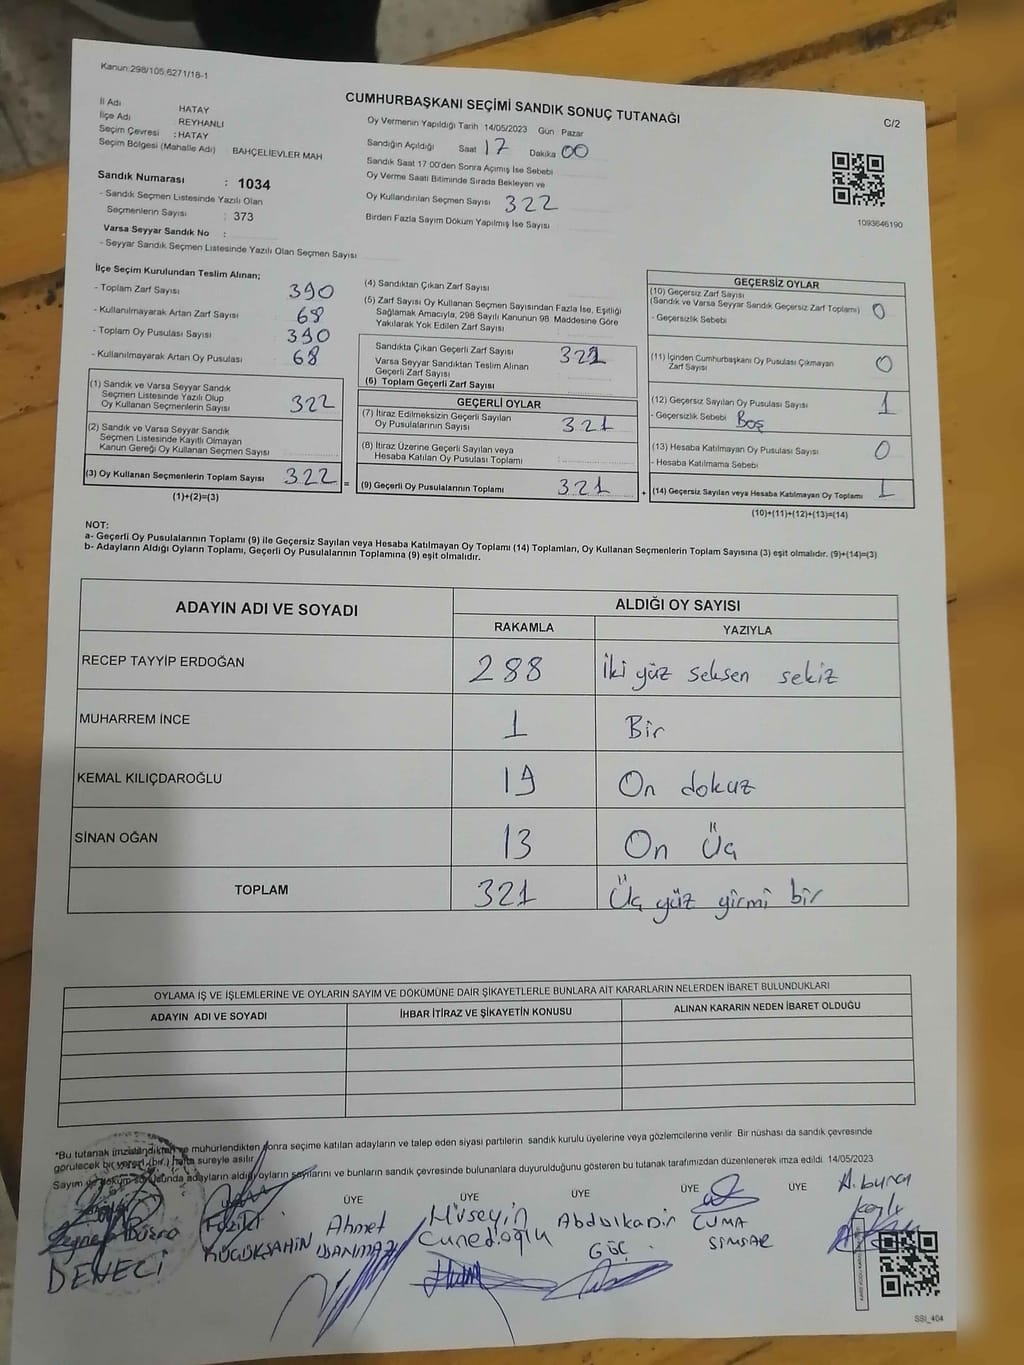 Kanun:298/105;6271/18-1
CUMHURBAŞKANI SEÇİMİ SANDIK SONUÇ TUTANAĞI
C/2
İl Adı HATAY
İlçe Adı REYHANLI
Seçim Çevresi : HATAY
Seçim Bölgesi (Mahalle Adı) BAHÇELİEVLER MAH
Sandık Numarası : 1034
- Sandık Seçmen Listesinde Yazılı Olan
Seçmenlerin Sayısı : 373
Varsa Seyyar Sandık No :
- Seyyar Sandık Seçmen Listesinde Yazılı Olan Seçmen Sayısı
Oy Vermenin Yapıldığı Tarih 14/05/2023 Gün Pazar
Sandığın Açıldığı Saat 17 Dakika 00
Sandık Saat 17:00'den Sonra Açımış İse Sebebi
Oy Verme Saati Bitiminde Sırada Bekleyen ve
Oy Kullandırılan Seçmen Sayısı 322
Birden Fazla Sayım Döküm Yapılmış İse Sayısı
1093646190
İlçe Seçim Kurulundan Teslim Alınan;
- Toplam Zarf Sayısı 390
- Kullanılmayarak Artan Zarf Sayısı 68
- Toplam Oy Pusulası Sayısı 390
- Kullanılmayarak Artan Oy Pusulası 68
(1) Sandık ve Varsa Seyyar Sandık
Seçmen Listesinde Yazılı Olup
Oy Kullanan Seçmenlerin Sayısı 322
(2) Sandık ve Varsa Seyyar Sandık
Seçmen Listesinde Kayıtlı Olmayan
Kanun Gereği Oy Kullanan Seçmen Sayısı
(3) Oy Kullanan Seçmenlerin Toplam Sayısı 322 =
(1)+(2)=(3)
(4) Sandıktan Çıkan Zarf Sayısı
(5) Zarf Sayısı Oy Kullanan Seçmen Sayısından Fazla İse, Eşitliği
Sağlamak Amacıyla, 298 Sayılı Kanunun 98. Maddesine Göre
Yakılarak Yok Edilen Zarf Sayısı
Sandıkta Çıkan Geçerli Zarf Sayısı 321
Varsa Seyyar Sandıktan Teslim Alınan
Geçerli Zarf Sayısı
(6) Toplam Geçerli Zarf Sayısı
GEÇERLİ OYLAR
(7) İtiraz Edilmeksizin Geçerli Sayılan
Oy Pusulalarının Sayısı 321
(8) İtiraz Üzerine Geçerli Sayılan veya
Hesaba Katılan Oy Pusulası Toplamı
(9) Geçerli Oy Pusulalarının Toplamı 321 +
GEÇERSİZ OYLAR
(10) Geçersiz Zarf Sayısı
(Sandık ve Varsa Seyyar Sandık Geçersiz Zarf Toplamı) 0
- Geçersizlik Sebebi
(11) İçinden Cumhurbaşkanı Oy Pusulası Çıkmayan
Zarf Sayısı 0
(12) Geçersiz Sayılan Oy Pusulası Sayısı 1
- Geçersizlik Sebebi Boş
(13) Hesaba Katılmayan Oy Pusulası Sayısı 0
- Hesaba Katılmama Sebebi
(14) Geçersiz Sayılan veya Hesaba Katılmayan Oy Toplamı 1
(10)+(11)+(12)+(13)=(14)
NOT:
a- Geçerli Oy Pusulalarının Toplamı (9) ile Geçersiz Sayılan veya Hesaba Katılmayan Oy Toplamı (14) Toplamları, Oy Kullanan Seçmenlerin Toplam Sayısına (3) eşit olmalıdır. (9)+(14)=(3)
b- Adayların Aldığı Oyların Toplamı, Geçerli Oy Pusulalarının Toplamına (9) eşit olmalıdır.
ADAYIN ADI VE SOYADI ALDIĞI OY SAYISI
RAKAMLA YAZIYLA
RECEP TAYYİP ERDOĞAN 288 İki yüz seksen sekiz
MUHARREM İNCE 1 Bir
KEMAL KILIÇDAROĞLU 19 On dokuz
SİNAN OĞAN 13 On Üç
TOPLAM 321 Üç yüz yirmi bir
OYLAMA İŞ VE İŞLEMLERİNE VE OYLARIN SAYIM VE DÖKÜMÜNE DAİR ŞİKAYETLERLE BUNLARA AİT KARARLARIN NELERDEN İBARET BULUNDUKLARI
ADAYIN ADI VE SOYADI İHBAR İTİRAZ VE ŞİKAYETİN KONUSU ALINAN KARARIN NEDEN İBARET OLDUĞU
*Bu tutanak imzalandıktan ve mühürlendikten sonra seçime katılan adayların ve talep eden siyasi partilerin sandık kurulu üyelerine veya gözlemcilerine verilir. Bir nüshası da sandık çevresinde
görülecek bir yere (bir) hafta süreyle asılır.
Sayım ve döküm sonucunda adayların aldığı oyların sayılarını ve bunların sandık çevresinde bulunanlara duyurulduğunu gösteren bu tutanak tarafımızdan düzenlenerek imza edildi. 14/05/2023
ÜYE ÜYE ÜYE ÜYE ÜYE
Zeynep Büşra
DENECİ
Fazilet
KÜÇÜKŞAHİN
Ahmet
Hüseyin
Cunedioğlu
Abdulkadir
GÖÇ
CUMA
SİMSAR
SSI_404